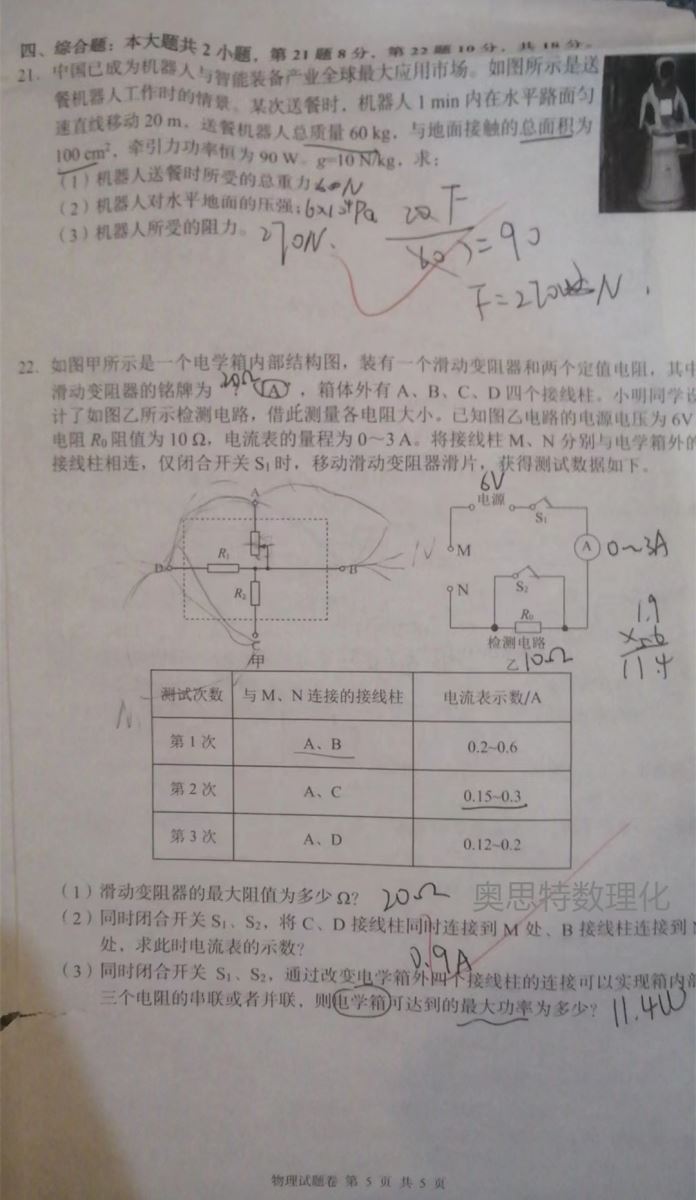 四、综合题：本大题共2小题，第21题8分，第22题10分，共18分。
21．中国已成为机器人与智能装备产业全球最大应用市场。如图所示是送
餐机器人工作时的情景。某次送餐时，机器人1 min内在水平路面匀
速直线移动20 m，送餐机器人总质量60 kg，与地面接触的总面积为
100 cm²，牵引力功率恒为90 W。g=10 N/kg，求：
（1）机器人送餐时所受的总重力
（2）机器人对水平地面的压强；6×10⁴Pa
（3）机器人所受的阻力。270N.
20 F
60
=90
F=270 N.
22．如图甲所示是一个电学箱内部结构图，装有一个滑动变阻器和两个定值电阻，其中
滑动变阻器的铭牌为 20Ω 1A，箱体外有A、B、C、D四个接线柱。小明同学设
计了如图乙所示检测电路，借此测量各电阻大小。已知图乙电路的电源电压为6V
电阻R₀阻值为10 Ω，电流表的量程为0～3 A。将接线柱M、N分别与电学箱外的
接线柱相连，仅闭合开关S₁时，移动滑动变阻器滑片，获得测试数据如下。
A
D
R₁
B
R₂
C
甲
N
6V
电源
S₁
M
A
0～3A
N
S₂
R₀
检测电路
乙
10Ω
1.9
×6
11.4
N
测试次数 与M、N连接的接线柱 电流表示数/A
第1次 A、B 0.2~0.6
第2次 A、C 0.15~0.3
第3次 A、D 0.12~0.2
（1）滑动变阻器的最大阻值为多少Ω？ 20Ω
奥思特数理化
（2）同时闭合开关S₁、S₂，将C、D接线柱同时连接到M处、B接线柱连接到N
处，求此时电流表的示数？
0.9A
（3）同时闭合开关S₁、S₂，通过改变电学箱外四个接线柱的连接可以实现箱内部
三个电阻的串联或者并联，则电学箱可达到的最大功率为多少？ 11.4W
物理试题卷 第5页 共5页